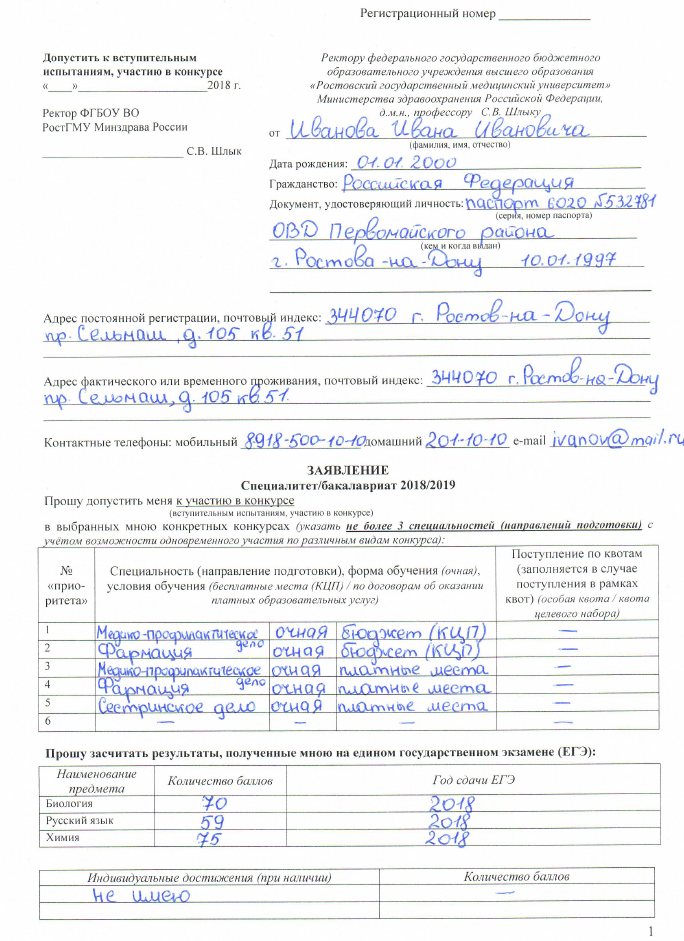 Регистрационный номер _______________
Допустить к вступительным
испытаниям, участию в конкурсе
«____»_____________________2018 г.
Ректор ФГБОУ ВО
РостГМУ Минздрава России
_______________________ С.В. Шлык
Ректору федерального государственного бюджетного
образовательного учреждения высшего образования
«Ростовский государственный медицинский университет»
Министерства здравоохранения Российской Федерации,
д.м.н., профессору С.В. Шлыку
от Иванова Ивана Ивановича
(фамилия, имя, отчество)
Дата рождения: 01.01.2000
Гражданство: Российская Федерация
Документ, удостоверяющий личность: паспорт 6020 №532781
(серия, номер паспорта)
ОВД Первомайского района
(кем и когда выдан)
г. Ростова-на-Дону 10.01.1997
Адрес постоянной регистрации, почтовый индекс: 344070 г. Ростов-на-Дону
пр. Сельмаш, д. 105 кв. 51
Адрес фактического или временного проживания, почтовый индекс: 344070 г. Ростов-на-Дону
пр. Сельмаш, д. 105 кв 51.
Контактные телефоны: мобильный 8918-500-10-10 домашний 201-10-10 e-mail ivanov@mail.ru
ЗАЯВЛЕНИЕ
Специалитет/бакалавриат 2018/2019
Прошу допустить меня к участию в конкурсе
(вступительным испытаниям, участию в конкурсе)
в выбранных мною конкретных конкурсах (указать не более 3 специальностей (направлений подготовки) с
учётом возможности одновременного участия по различным видам конкурса):
№ «прио-ритета» Специальность (направление подготовки), форма обучения (очная), условия обучения (бесплатные места (КЦП) / по договорам об оказании платных образовательных услуг) Поступление по квотам (заполняется в случае поступления в рамках квот) (особая квота / квота целевого набора)
1 Медико-профилактическое дело очная бюджет (КЦП) —
2 Фармация очная бюджет (КЦП) —
3 Медико-профилактическое дело очная платные места —
4 Фармация очная платные места —
5 Сестринское дело очная платные места —
6 — — — —
Прошу засчитать результаты, полученные мною на едином государственном экзамене (ЕГЭ):
Наименование предмета Количество баллов Год сдачи ЕГЭ
Биология 70 2018
Русский язык 59 2018
Химия 75 2018
Индивидуальные достижения (при наличии) Количество баллов
не имею —
1